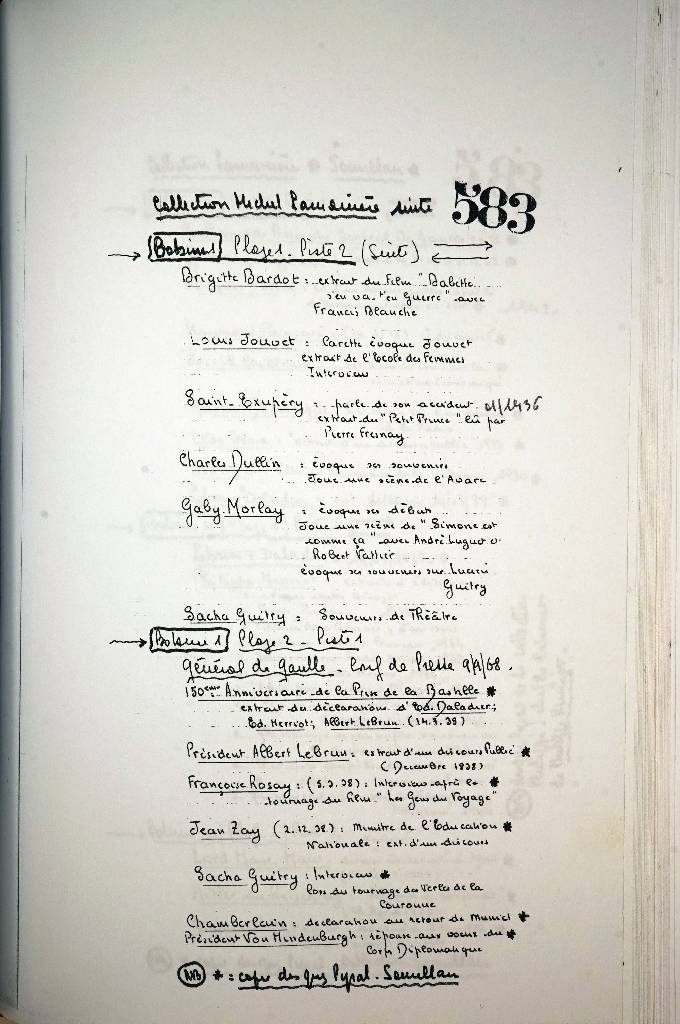 Collection Michel Lamoinière suite 583
→ Bobine 1 Plage 1 - Piste 2 (Suite)
Brigitte Bardot : extrait du Film "Babette
s'en va t'en Guerre" avec
Francis Blanche
Louis Jouvet : Carette évoque Jouvet
extrait de l'Ecole des Femmes
Interview
Saint-Exupéry : parle de son accident 01/1936
extrait du "Petit Prince" lû par
Pierre Fresnay
Charles Dullin : évoque ses souvenirs
Joue une scène de l'Avare
Gaby Morlay : évoque ses débuts
Joue une scène de "Simone est
comme ça" avec André Luguet &
Robert Vattier
évoque ses souvenirs sur Lucien
Guitry
Sacha Guitry : Souvenirs de Théâtre
→ Bobine 1 Plage 2 - Piste 1
Général de Gaulle - Conf de Presse 9/9/68.
150ème Anniversaire de la Prise de la Bastille *
extrait des déclarations d'Ed. Daladier;
Ed. Herriot; Albert LeBrun. (14.7.39)
Président Albert LeBrun : extrait d'un discours Public *
(Decembre 1938)
Françoise Rosay : (5.3.38) : Interview après le *
tournage du film "Les Gens du Voyage"
Jean Zay (2.12.38) : Ministre de l'Education *
Nationale : ext. d'un discours
Sacha Guitry : Interview *
lors du tournage des Perles de la
Couronne
Chamberlain : declaration au retour de Munich *
Président Von Hindenburgh : réponse aux voeux du *
Corps Diplomatique
NB * = copie des Pyral - Semillan